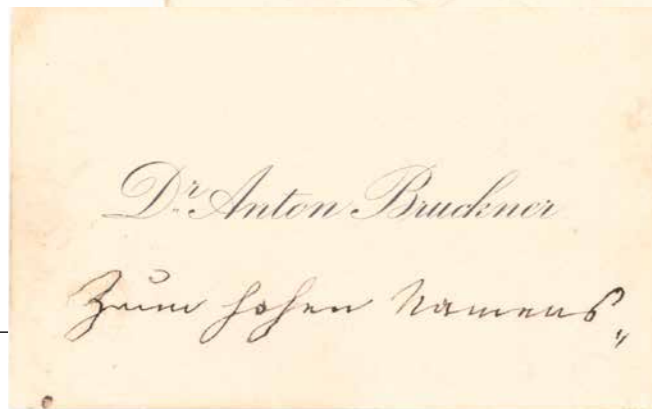 Dr. Anton Bruckner
Zum hohen Namens„